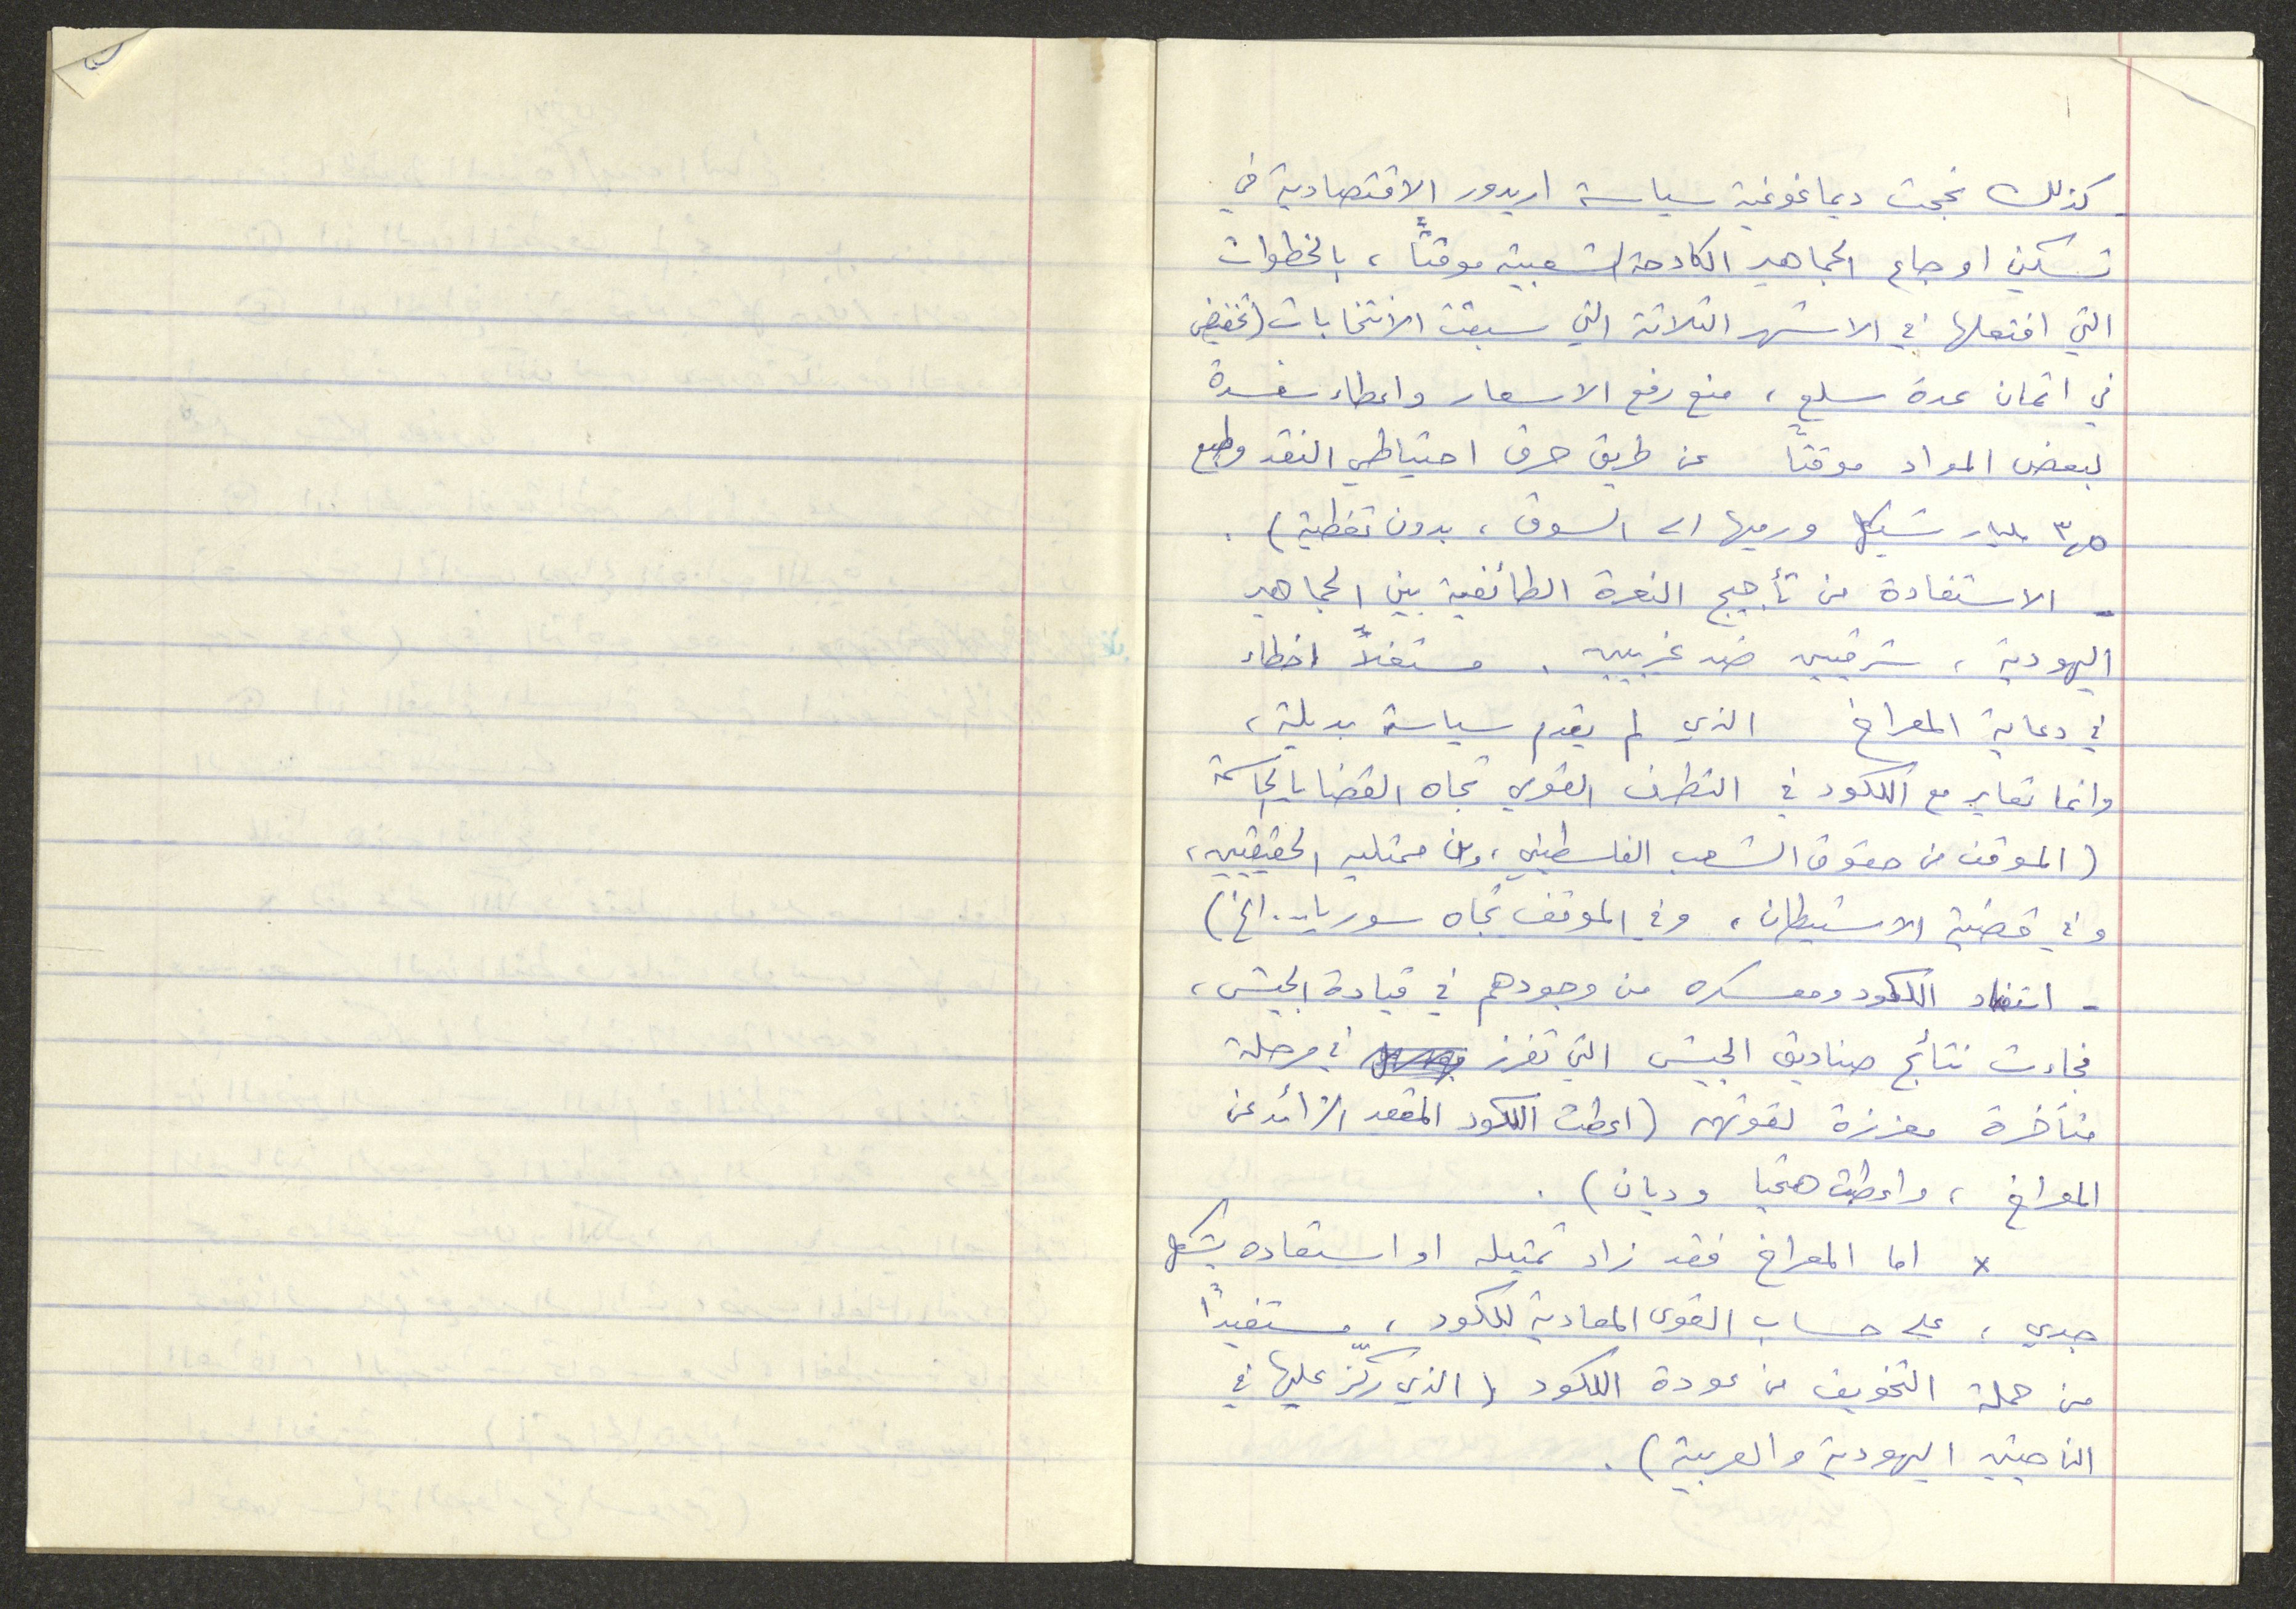 - كذلك نجحت ديماغوغية سياسة اريدور الاقتصادية في
تسكين اوجاع الجماهير الكادحة الشعبية موقتًا ، بالخطوات
التي افتعلها في الاشهر الثلاثة التي سبقت الانتخابات (تخفيض
في اثمان عدة سلع ، منع رفع الاسعار واعطاء
لبعض المواد موقتًا عن طريق حرق احتياطي النقد وطبع
٣,٥ مليار شيكل ورميها الى السوق ، بدون تغطية) .
- الاستفادة من تأجيج النعرة الطائفية بين الجماهير
اليهودية ، شرقيين ضد غربيين . مستغلاً اخطاء
في دعاية المعراخ الذي لم يقدم سياسة بديلة ،
وانما تعاير مع الليكود في التطرف القومي تجاه القضايا الحاسمة
(الموقف من حقوق الشعب الفلسطيني ، ومن ممثليه الحقيقيين ،
وفي قضية الاستيطان ، وفي الموقف تجاه سوريا .. الخ)
- استفاد الليكود ومعسكره من وجودهم في قيادة الجيش ،
فجاءت نتائج صناديق الجيش التي تفرز في مرحلة
متأخرة معززة لقوتهم (اعطت الليكود المقعد الزائد عن
المعراخ ، واعطت هتحيا وديان) .
x اما المعراخ فقد زاد تمثيله او استعاده بشكل
جدي ، على حساب القوى المعادية لليكود ، مستفيدًا
من حملة التخويف من عودة الليكود (الذي ركّز عليها في
الناحيتين اليهودية والعربية) .